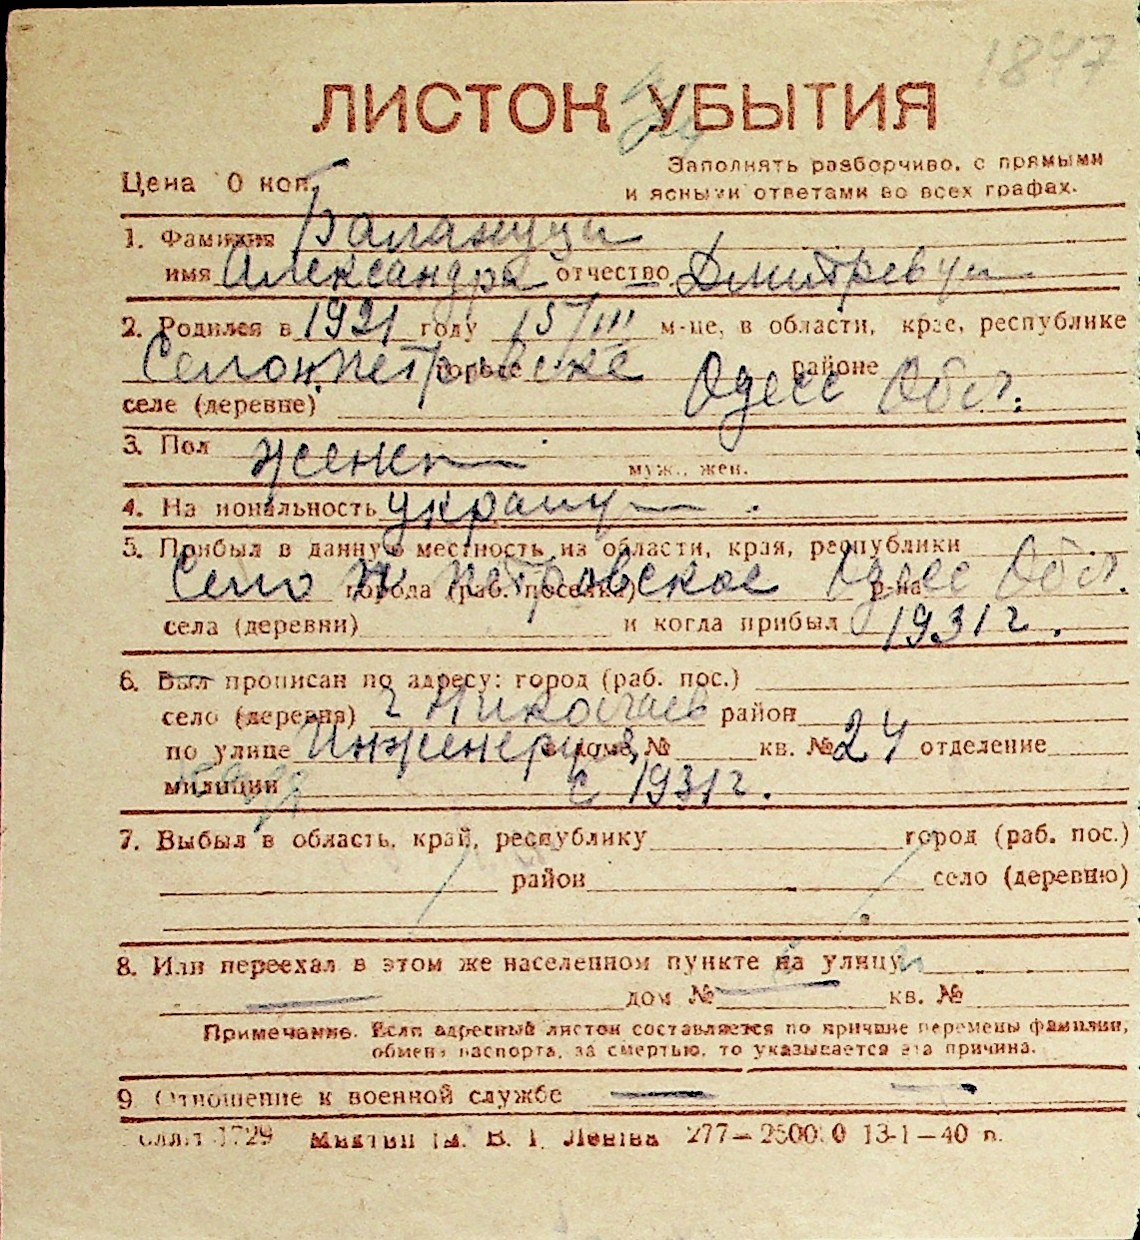 1847
ЛИСТОК УБЫТИЯ
Заполнять разборчиво, с прямыми
и ясными ответами во всех графах.
Цена 0 коп.
1. Фамилия Балануци
имя Александра отчество Дмитревн
2. Родился в 1921 году 15/III м-це, в области, крае, республике
Село н. петровске городе районе
селе (деревне) Одесс Обл.
3. Пол женск муж., жен.
4. Национальность украин
5. Прибыл в данную местность из области, края, республики
Село н петровское города (раб. поселка) Одесс Обл. р-на
села (деревни) и когда прибыл 1931 г.
6. Был прописан по адресу: город (раб. пос.)
село (деревня) г Николаев район
по улице Инженерная дом № кв. № 24 отделение
милиции с 1931 г.
7. Выбыл в область, край, республику город (раб. пос.)
район село (деревню)
8. Или переехал в этом же населенном пункте на улицу
дом № кв. №
Примечание. Если адресный листок составляется по причине перемены фамилии,
обмена паспорта, за смертью, то указывается эта причина.
9 Отношение к военной службе
1729 В. І. Леніна 277—25000 13-1—40 п.